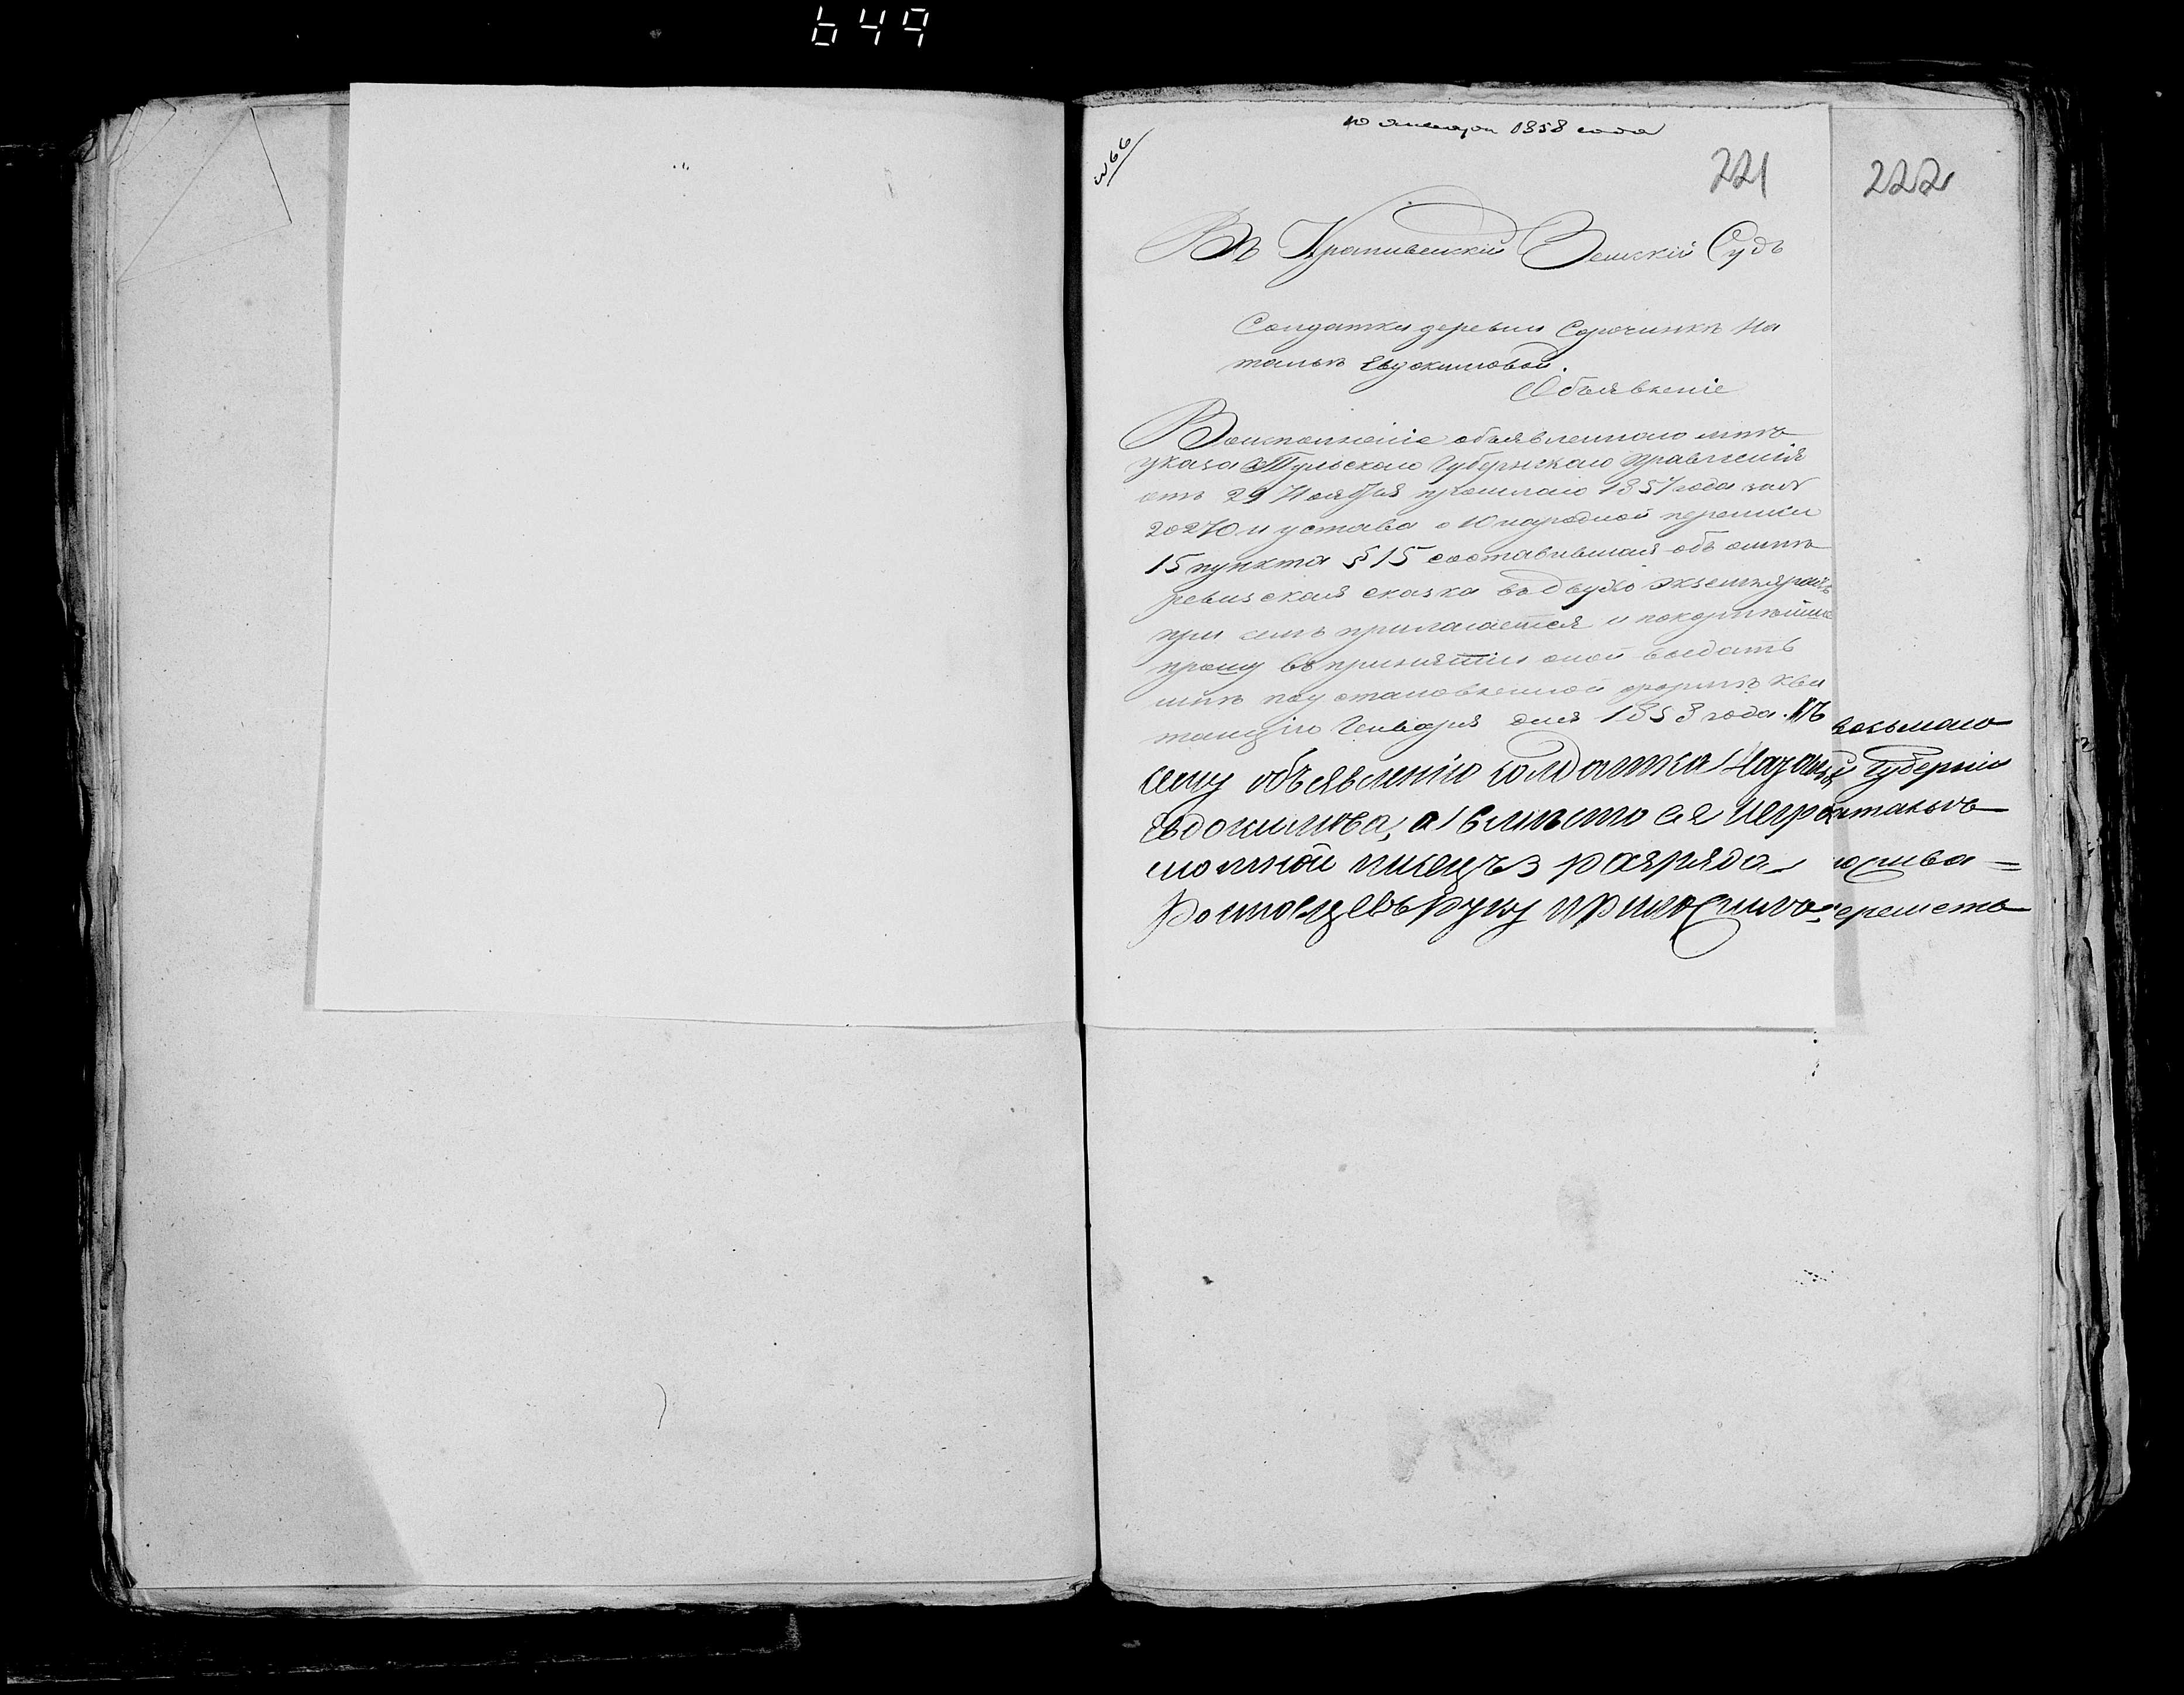 649
10 января 1858 года
№ 66
221
222
Въ Крапивенскій Земскій Судъ
Солдатки деревни Сорочинкъ На
тальи Евдокимовой.
Объявленіе
Во исполненіе объявленнаго мнѣ
указа Тульскаго Губернскаго Правленія
отъ 29 Ноября прошлаго 1857 года за №
20270 и устава о 10 народной переписи
15 пункта § 15 составившая обо мнѣ
ревизская сказка въ двухъ экземплярахъ
при семъ прилагается и покорнѣйше
прошу въ принятіи оной выдать
мнѣ по установленной формѣ Кви
танцію Генваря дня 1858 года. Къ
сему объявленію солдатка
Евдокимова, а вмѣсто ея Негра
мотной писецъ 3 разряда
Ростовцевъ руку приложилъ
восьмаго
Губерніи